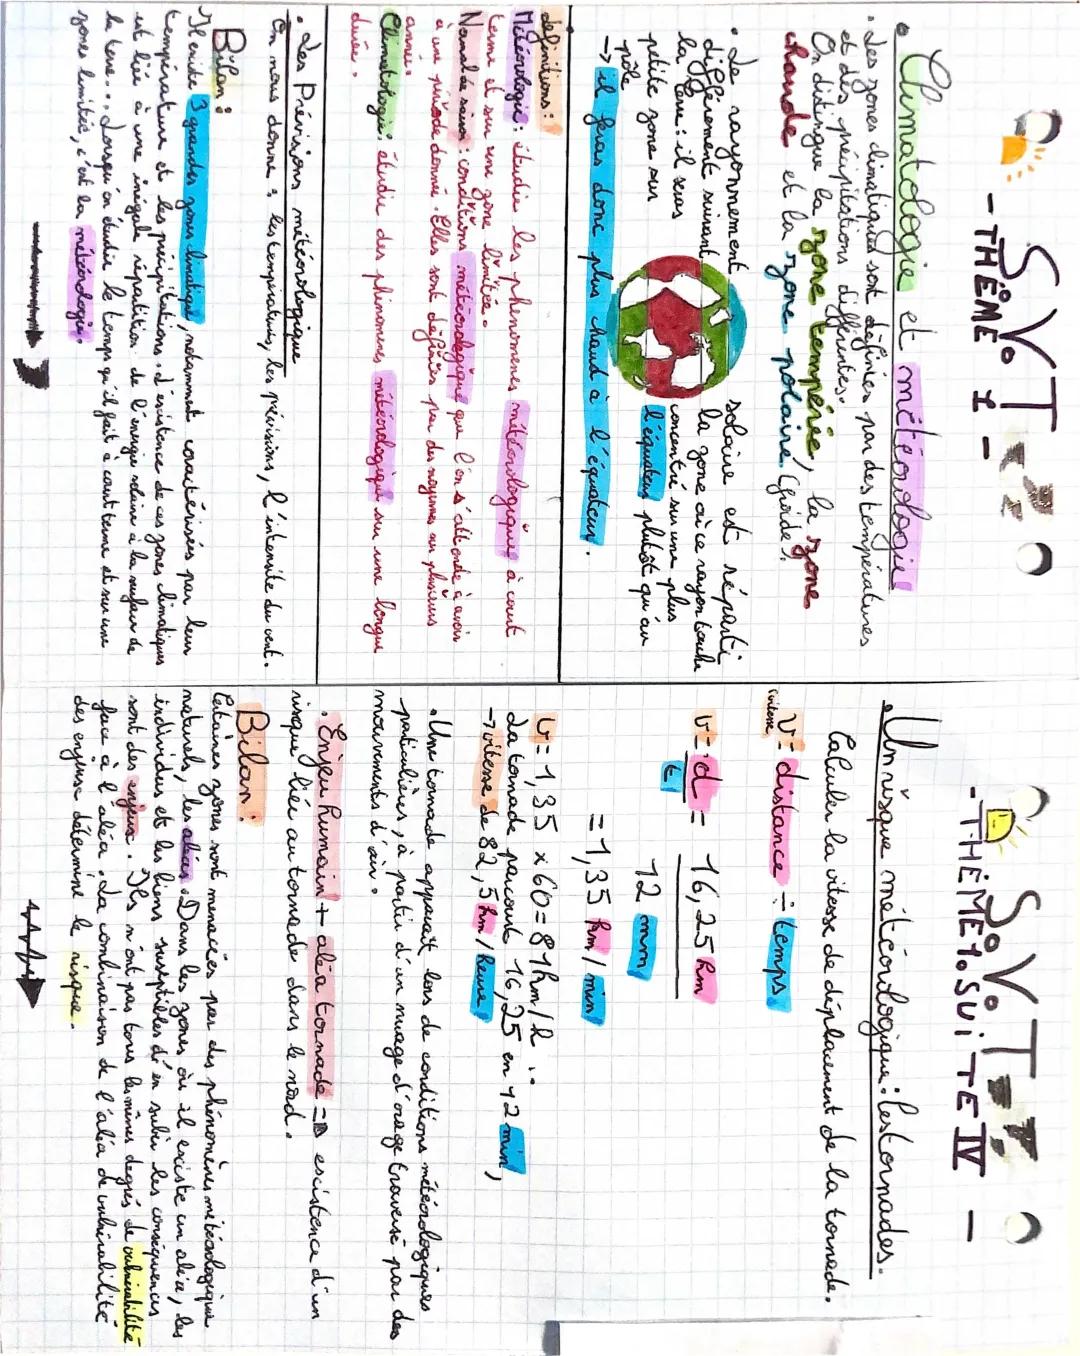 S.V.T
- THÈME 1 -
• Climatologie et météorologie
• Les zones climatiques sont définies par des températures
et des précipitations différentes.
On distingue la zone tempérée, la zone
chaude et la zone polaire (froide).
• Le rayonnement solaire est réparti
différement suivant la zone où ce rayon touche
la Terre : il seras concentré sur une plus
petite zone sur l'équateur plutôt qu'au
pôle
→ il feras donc plus chaud à l'équateur.
définitions :
Météorologie : étudie les phénomènes météorologiques à court
terme et sur une zone limitée.
Normale de saison : conditions météorologique que l'on s'attende à avoir
à une période donné. Elles sont définies par des moyennes sur plusieurs
années.
Climatologie : étudie des phénomènes météorologique sur une longue
durée.
• Les Prévisions météorologique
On nous donne : les températures, les prévisions, l'intensité du vent.
Bilan :
Il existe 3 grandes zones climatique, notamment caractérisées par leur
température et les précipitations. L'existence de ces zones climatiques
est liée à une inégale répartition de l'énergie solaire à la surface de
la terre... Lorsqu'on étudie le temps qu'il fait à court terme et sur une
zones limitée, c'est la météorologie.
S.V.T
- THÈME 1. SUITE IV -
Un risque météorologique : les tornades.
Calculer la vitesse de déplacement de la tornade.
V = distance ÷ temps
vitesse
V = d = 16,25 km
t 12 mm
= 1,35 km/min
V = 1,35 x 60 = 81 km/h :
La tornade parcourt 16,25 en 12 min,
→ vitesse de 82,5 km/heure
• Une tornade apparait lors de conditions météorologiques
particulières, à partir d'un nuage d'orage traversé par des
mouvements d'air.
• Enjeu humain + aléa tornade => existence d'un
risque liée au tornade dans le nord.
Bilan :
Certaines zones sont menacées par des phénomènes météorologique
naturels, les aléas. Dans les zones où il existe un aléa, les
individus et les biens suseptibles d'en subir les conséquences
sont des enjeux. Ils n'ont pas tous les mêmes degrés de vulnérabilité
face à l'aléa. La combinaison de l'aléa de vulnérabilité
des enjeux détermine le risque.